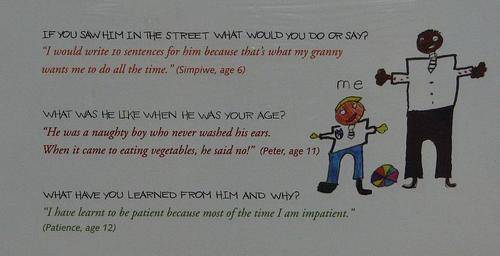 IF YOU SAW HIM IN THE STREET WHAT WOULD YOU DO OR SAY?
"I would write 10 sentences for him because that's what my granny
wants me to do all the time." (Simpiwe, age 6)
me
WHAT WAS HE LIKE WHEN HE WAS YOUR AGE?
"He was a naughty boy who never washed his ears.
When it came to eating vegetables, he said no!" (Peter, age 11)
WHAT HAVE YOU LEARNED FROM HIM AND WHY?
"I have learnt to be patient because most of the time I am impatient."
(Patience, age 12)